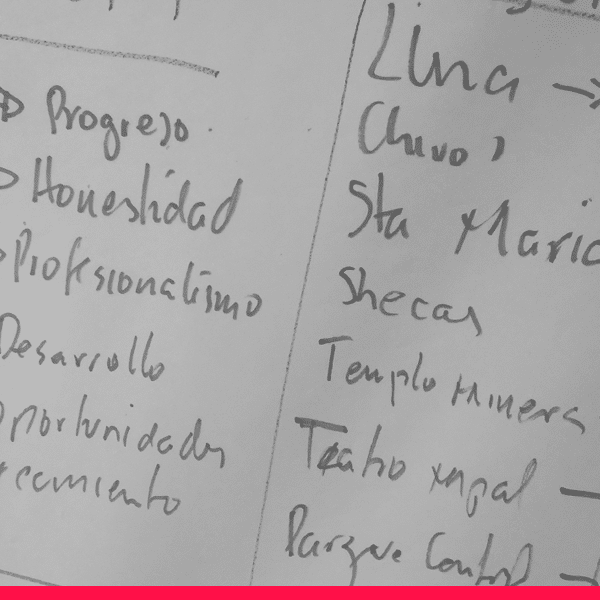 Progreso
Honestidad
Profesionalismo
Desarrollo
Oportunidades
Lima →
(Chuvo)
Sta Maria
Shecas
Templo
Teatro
Parque Central